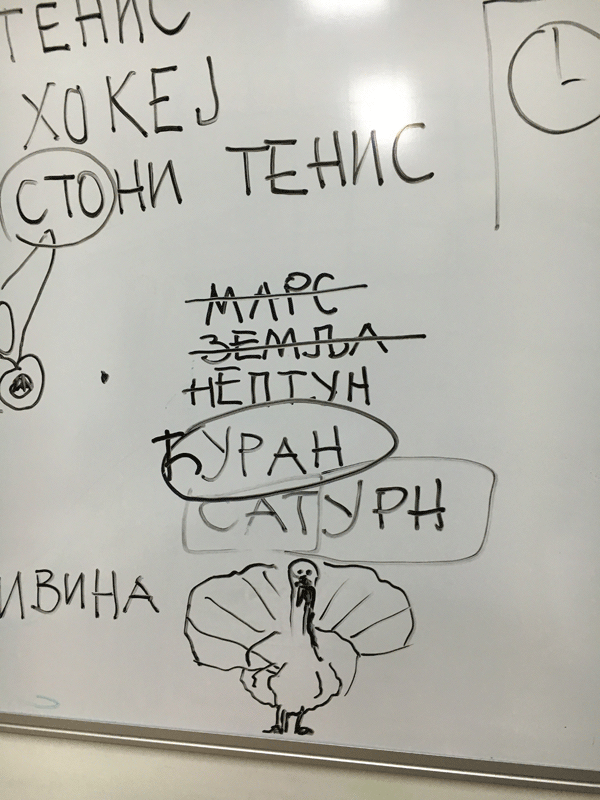 ТЕНИС
ХОКЕЈ
СТОНИ ТЕНИС
МАРС
ЗЕМЉА
НЕПТУН
ЋУРАН
САТУРН
ИВИНА